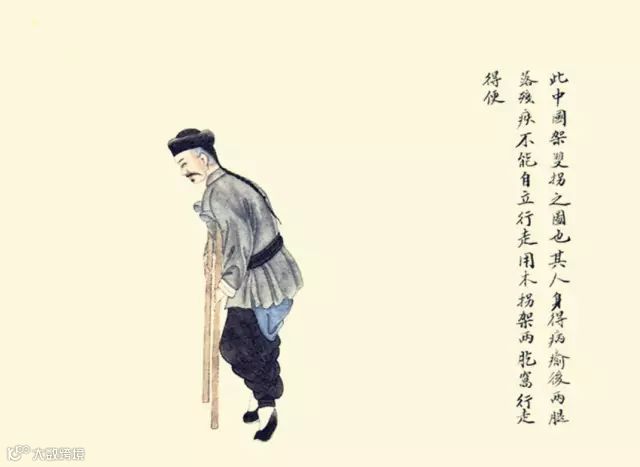 此中國架雙拐之圖也其人身得病痊後兩腿
落殘疾不能自立行走用木拐架兩肐窩行走
得便
大数跨境